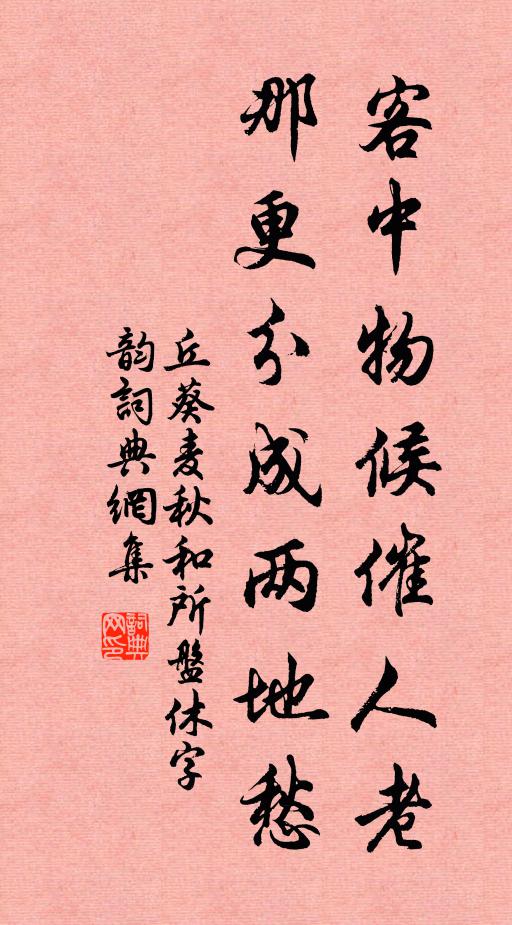 客中物候催人老
那更分成两地愁
丘葵麦秋和所盤休字
韵詞典網集
詞典网印